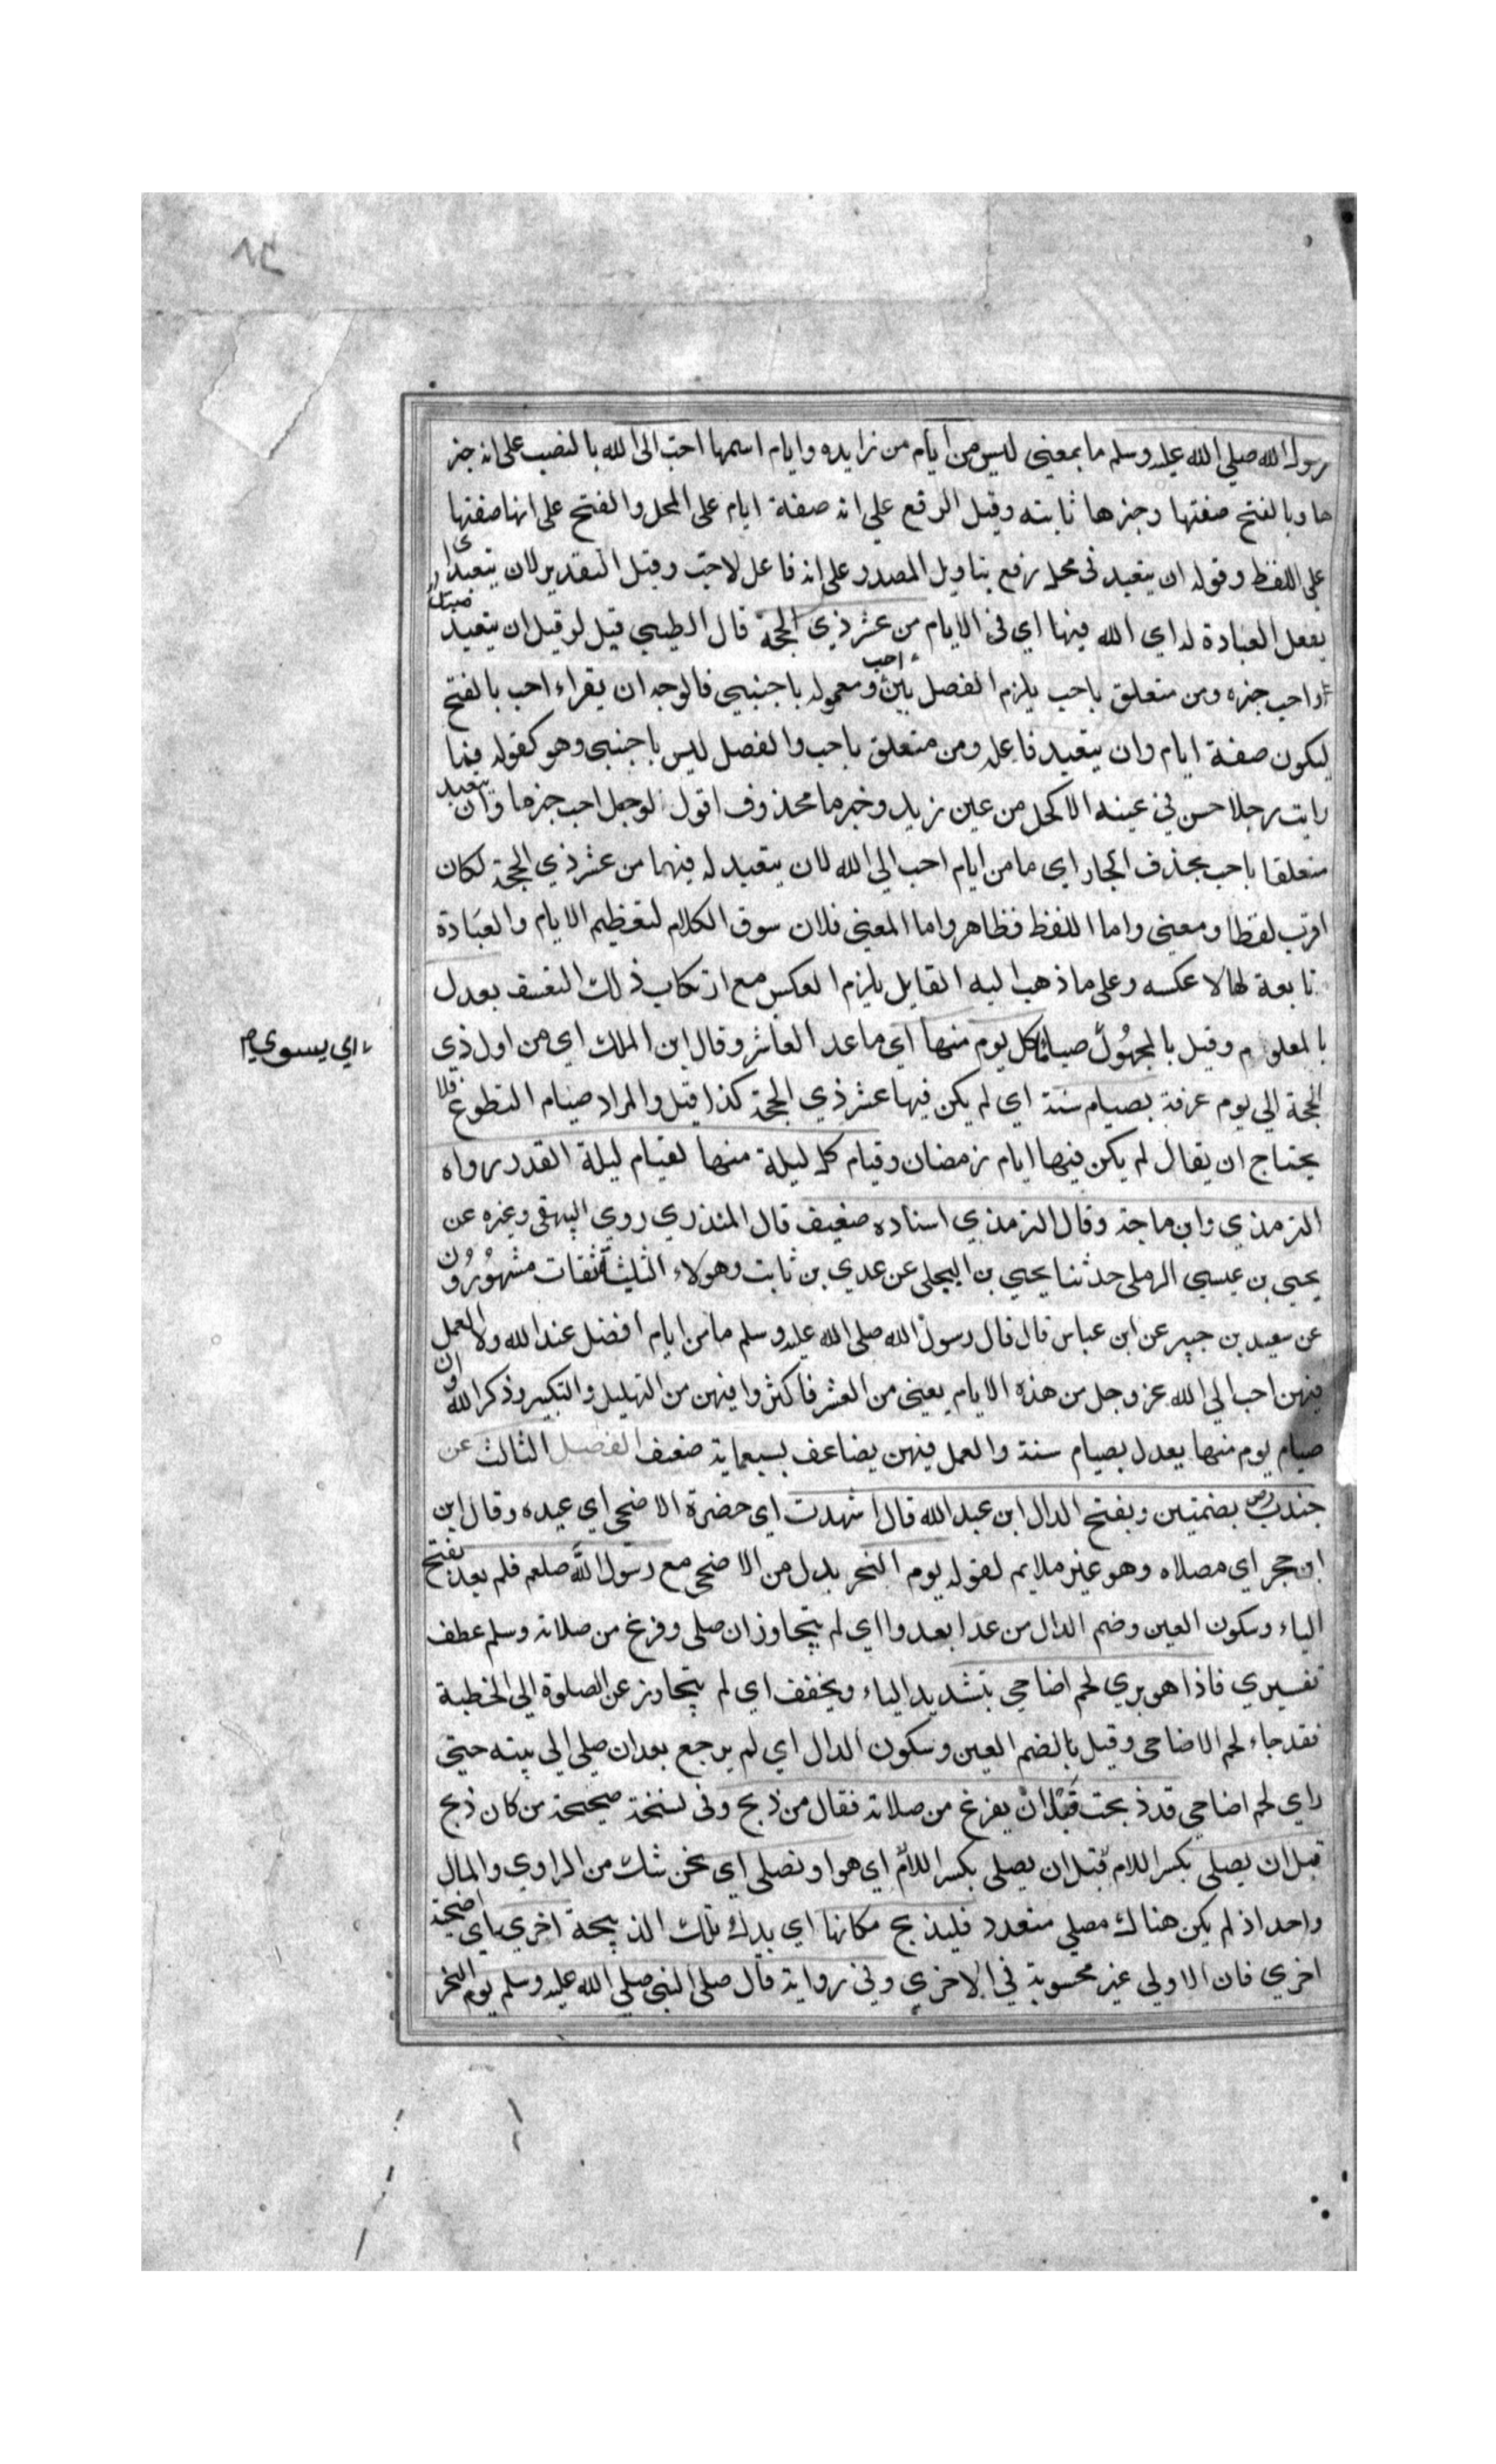 ٨٣
رسول الله صلي الله عليه وسلم ما بمعني ليس من ايام من زايده وايام اسمها احب الي الله بالنصب علي انه خبر
ها وبالفتح صفتها وخبرها ثابته وقيل الرفع علي انه صفة ايام علي المحل والفتح علي انها صفتها
علي اللفظ وقوله ان يتعبد في محل رفع بتاويل المصدر علي انه فاعل لاحب وقيل التقدير لان يتعبد اي
يفعل العبادة له اي الله فيها اي في الايام من عشر ذي الحجة قال الطيبي قيل لو قيل ان يتعبد مبتدا
واحب خبره ومن متعلق باحب يلزم الفصل بين احب ومعموله باجنبي فالوجه ان يقراء احب بالفتح
ليكون صفة ايام وان يتعبد فاعله ومن متعلق باحب والفصل ليس باجنبي وهو كقوله فيما
رايت رجلا حسن في عينه الاكحل من عين زيد وخبر ما محذوف اقول لوجعل احب خبر ما وان يتعبد
متعلقا باحب بحذف الجار اي ما من ايام احب الي الله لان يتعبد له فيهما من عشر ذي الحجة لكان
اقرب لفظا ومعني واما اللفظ فظاهر واما المعني فلان سوق الكلام لتعظيم الايام والعبادة
تابعة لها لا عكسه وعلي ما ذهب اليه القايل يلزم العكس مع ارتكاب ذلك التعسف يعدل
بالمعلوم وقيل بالمجهول صيام كل يوم منها اي ما عد العاشر وقال ابن الملك اي من اول ذي
اي يسوي م
الحجة الي يوم عرفة بصيام سنة اي لم يكن فيها عشر ذي الحجة كذا قيل والمراد صيام التطوع فلا
يحتاج ان يقال لم يكن فيها ايام رمضان وقيام كل ليلة منها لقيام ليلة القدر رواه
الترمذي وابن ماجة وقال الترمذي اسناده ضعيف قال المنذري روي البيهقي وغيره عن
يحيي بن عيسي الرملي حدثنا يحيي بن البجلي عن عدي بن ثابت وهولاء الثلثة ثقات مشهورون
عن سعيد بن جبير عن ابن عباس قال قال رسول الله صلي الله عليه وسلم ما من ايام افضل عند الله ولا العمل
فيهن احب الي الله عز وجل من هذه الايام يعني من العشر فاكثروا فيهن من التهليل والتكبير وذكر الله وان
صيام يوم منها يعدل بصيام سنة والعمل فيهن يضاعف بسبعماية ضعف الفصل الثالث عن
جندب رض بضمتين وبفتح الدال ابن عبد الله قال شهدت اي حضرة الاضحي اي عيده وقال ابن
ابن حجر اي مصلاه وهو غير ملايم لقوله يوم النحر بدل من الاضحي مع رسول الله صلعم فلم يعد بفتح
الياء وسكون العين وضم الدال من عدا يعدوا اي لم يتجاوز ان صلي وفرغ من صلاته وسلم عطف
تفسيري فاذا هو يري لحم اضاحي بتشديد الياء ويخفف اي لم يتجاوز عن الصلوة الي الخطبة
فقد جاء لحم الاضاحي وقيل بالضم العين وسكون الدال اي لم يرجع بعد ان صلي الي بيته حتي
راي لحم اضاحي قد ذبحت قبل ان يفرغ من صلاته فقال من ذبح وفي نسخة صحيحة من كان ذبح
قبل ان يصلي بكسر اللام قبل ان يصلي بكسر اللام اي هو او نصلي اي نحن شك من الراوي والمال
واحد اذ لم يكن هناك مصلي متعدد فليذبح مكانها اي بدل تلك الذبيحة اخري اي اضحية
اخري فان الاولي غير محسوبة في الاخري وفي رواية قال صلي النبي صلي الله عليه وسلم يوم النحر